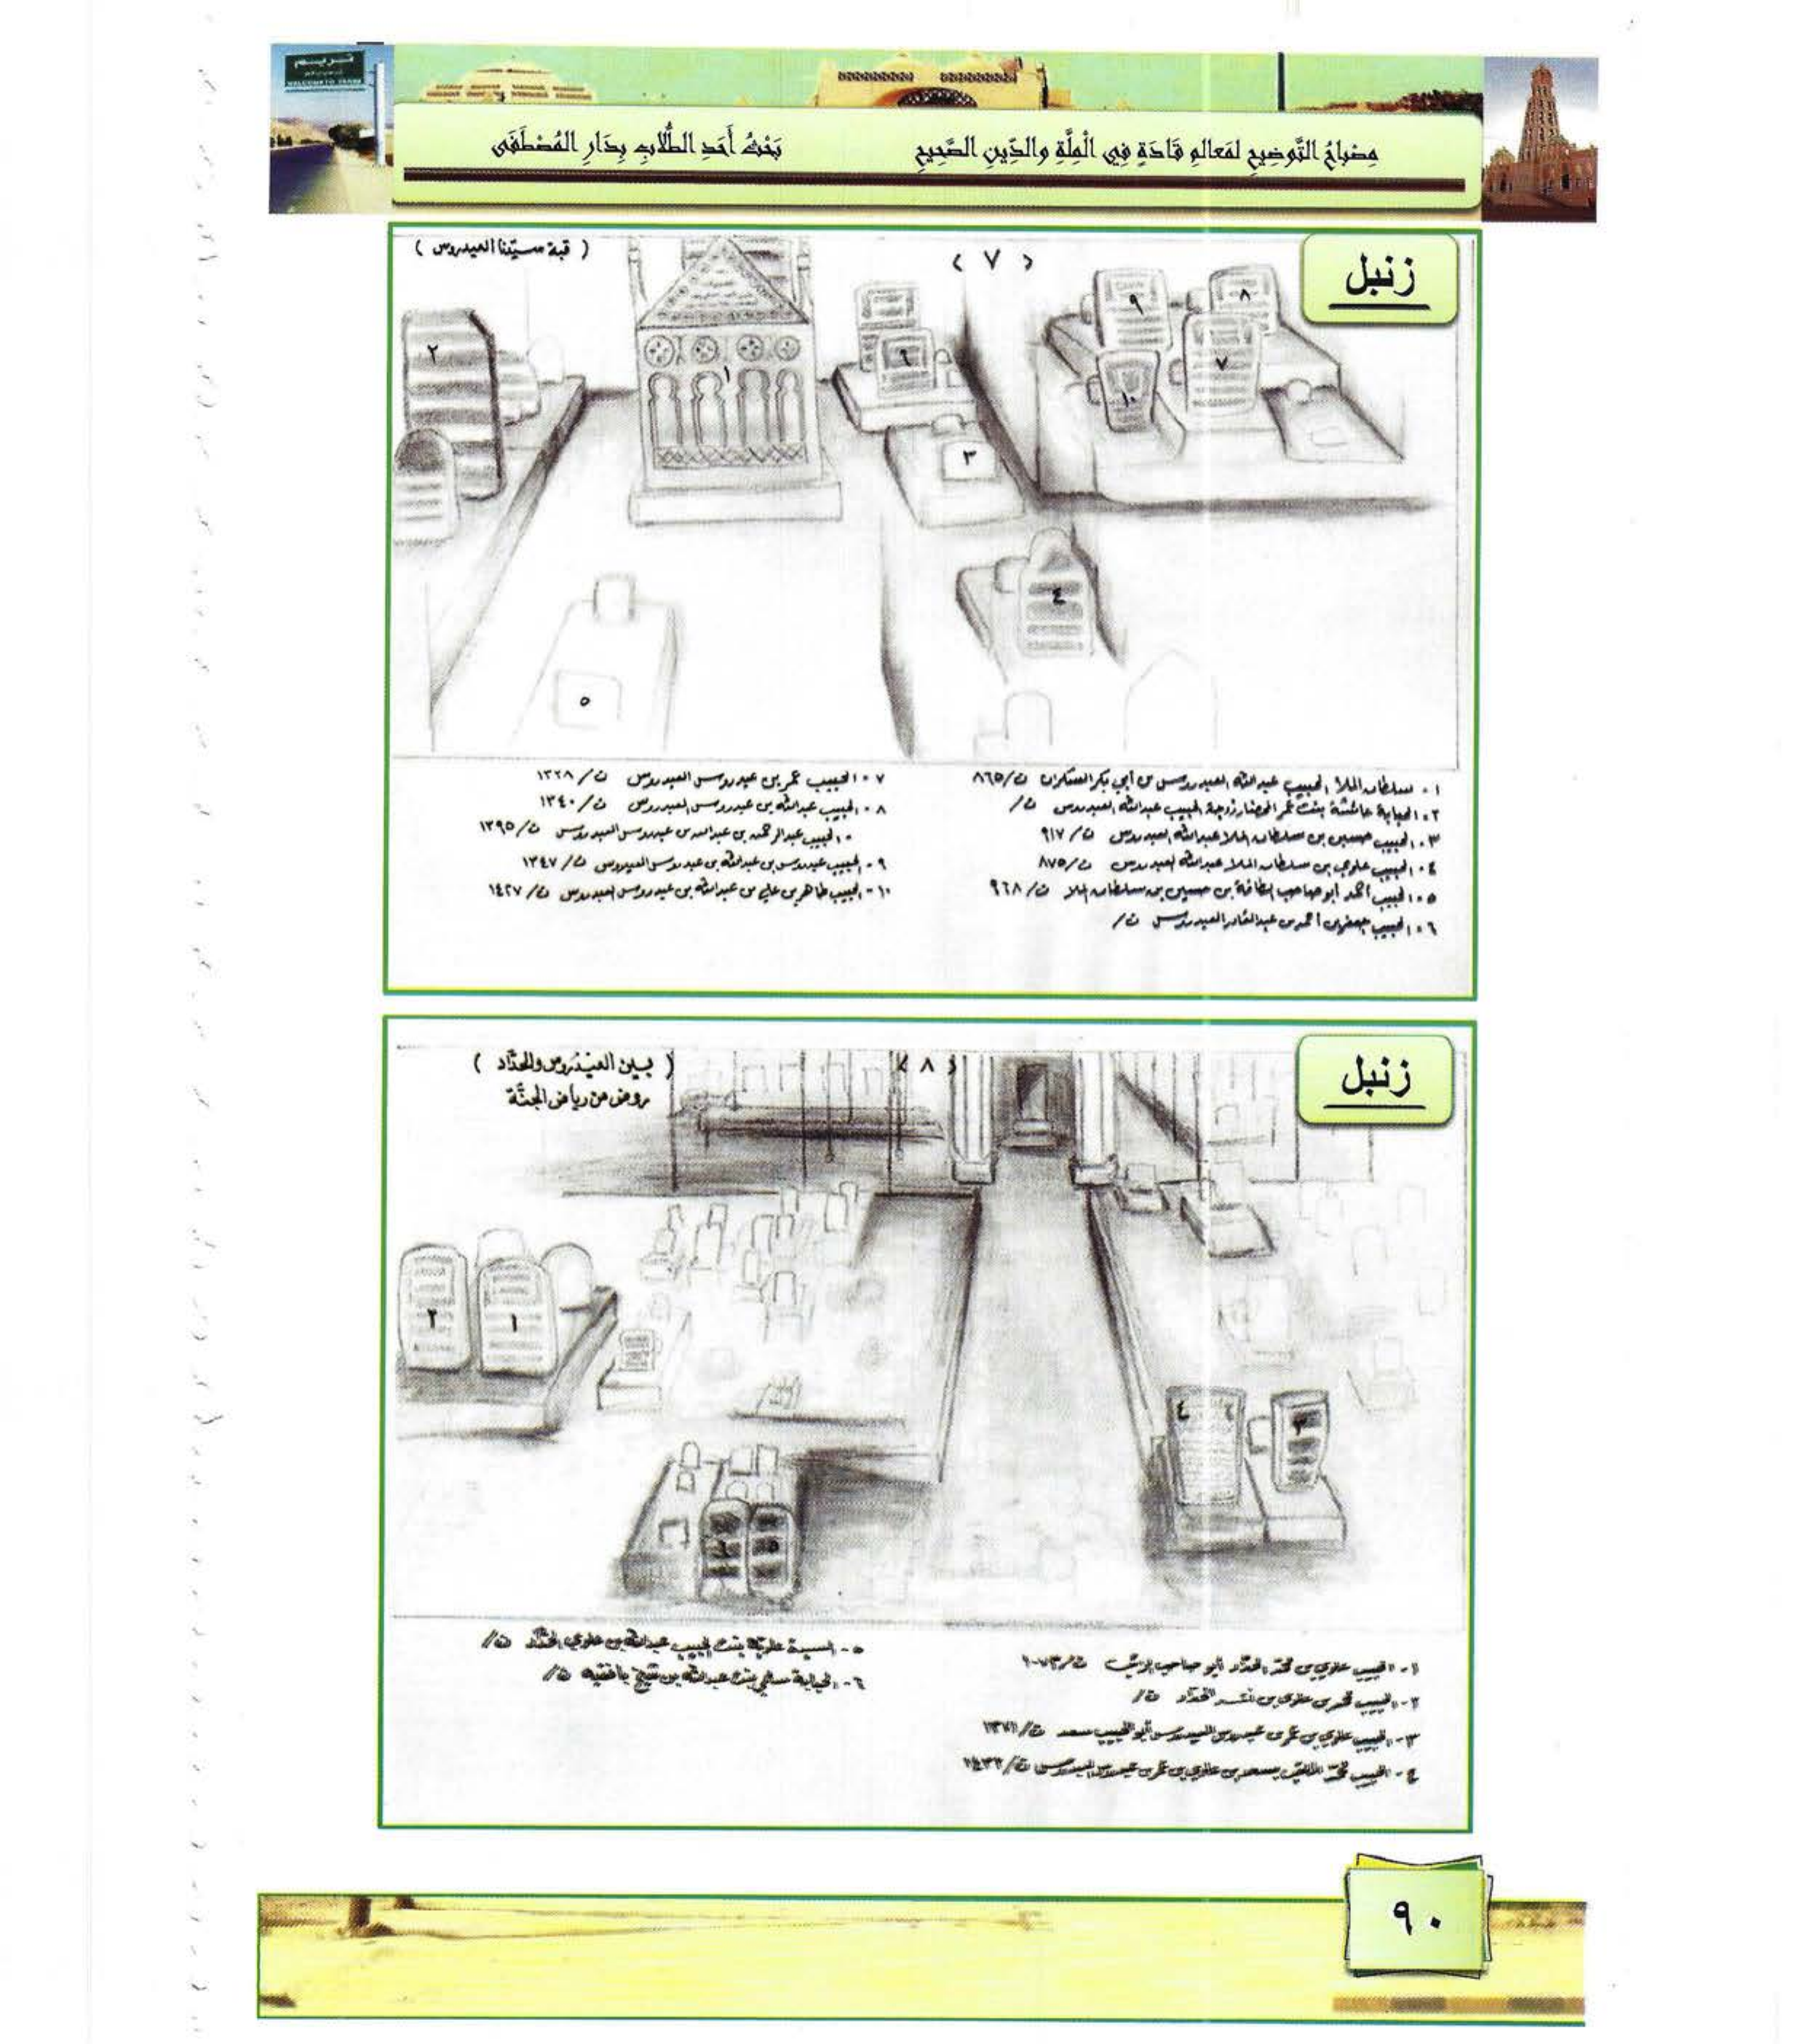 تريم
WELCOME TO TARIM
مِصْبَاحُ التَّوضِيحِ لمَعالمِ قَادَةٍ فِي الْمِلَّةِ والدِّينِ الصَّحِيحِ
بَحْثُ أَحَدِ الطُّلَّابِ بِدَارِ المُصْطَفَى
زنبل
< ٧ >
( قبة سيّدنا العيدروس )
٩
٨
٢
١
٦
٧
١٠
٣
٤
٥
١- سلطان الملأ الحبيب عبدالله العيدروس بن أبي بكر السكران ت/٨٦٥
٢- الحبابة عائشة بنت عمر المحضار زوجة الحبيب عبدالله العيدروس ت/
٣- الحبيب حسين بن سلطان الملا عبدالله العيدروس ت/ ٩١٧
٤- الحبيب علوي بن سلطان الملا عبدالله العيدروس ت/ ٨٧٥
٥- الحبيب أحمد أبو صاحب الطاقة بن حسين بن سلطان الملا ت/ ٩٦٨
٦- الحبيب جعفر بن أحمد بن عبدالقادر العيدروس ت/
٧- الحبيب عمر بن عيدروس العيدروس ت/ ١٣٢٨
٨- الحبيب عبدالله بن عيدروس العيدروس ت/ ١٣٤٠
- الحبيب عبدالرحمن بن عبدالله بن عيدروس العيدروس ت/ ١٣٩٥
٩- الحبيب عيدروس بن عبدالله بن عيدروس العيدروس ت/ ١٣٤٧
١٠- الحبيب طاهر بن علي بن عبدالله بن عيدروس العيدروس ت/ ١٤٢٧
زنبل
< ٨ >
( بين العيدروس والحدّاد )
روض من رياض الجنّة
٢
١
٤
٣
٦
٥
١- الحبيب علوي بن محمد الحداد أبو صاحب ت/١٠٧٣
٢- الحبيب محمد بن علوي بن الحداد ت/
٣- الحبيب علوي بن عمر بن عيدروس العيدروس أبو الحبيب سعد ت/ ١٣٧١
٤- الحبيب محمد الملقب بسعد بن علوي بن عمر بن عيدروس العيدروس ت/ ١٤٣٢
٥- السيدة علوية بنت الحبيب عبدالله بن علوي الحدّاد ت/
٦- الحبابة سلمى بنت عبدالله بن شيخ بافقيه ت/
٩٠